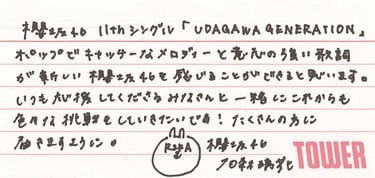 櫻坂46 11thシングル「UDAGAWA GENERATION」
ポップでキャッチーなメロディーと意志の強い歌詞
が新しい櫻坂46を感じることができると思います。
いつも応援してくださるみなさんと一緒にこれからも
色々な挑戦をしていきたいです！たくさんの方に
届きますように。
櫻坂46
TOWER